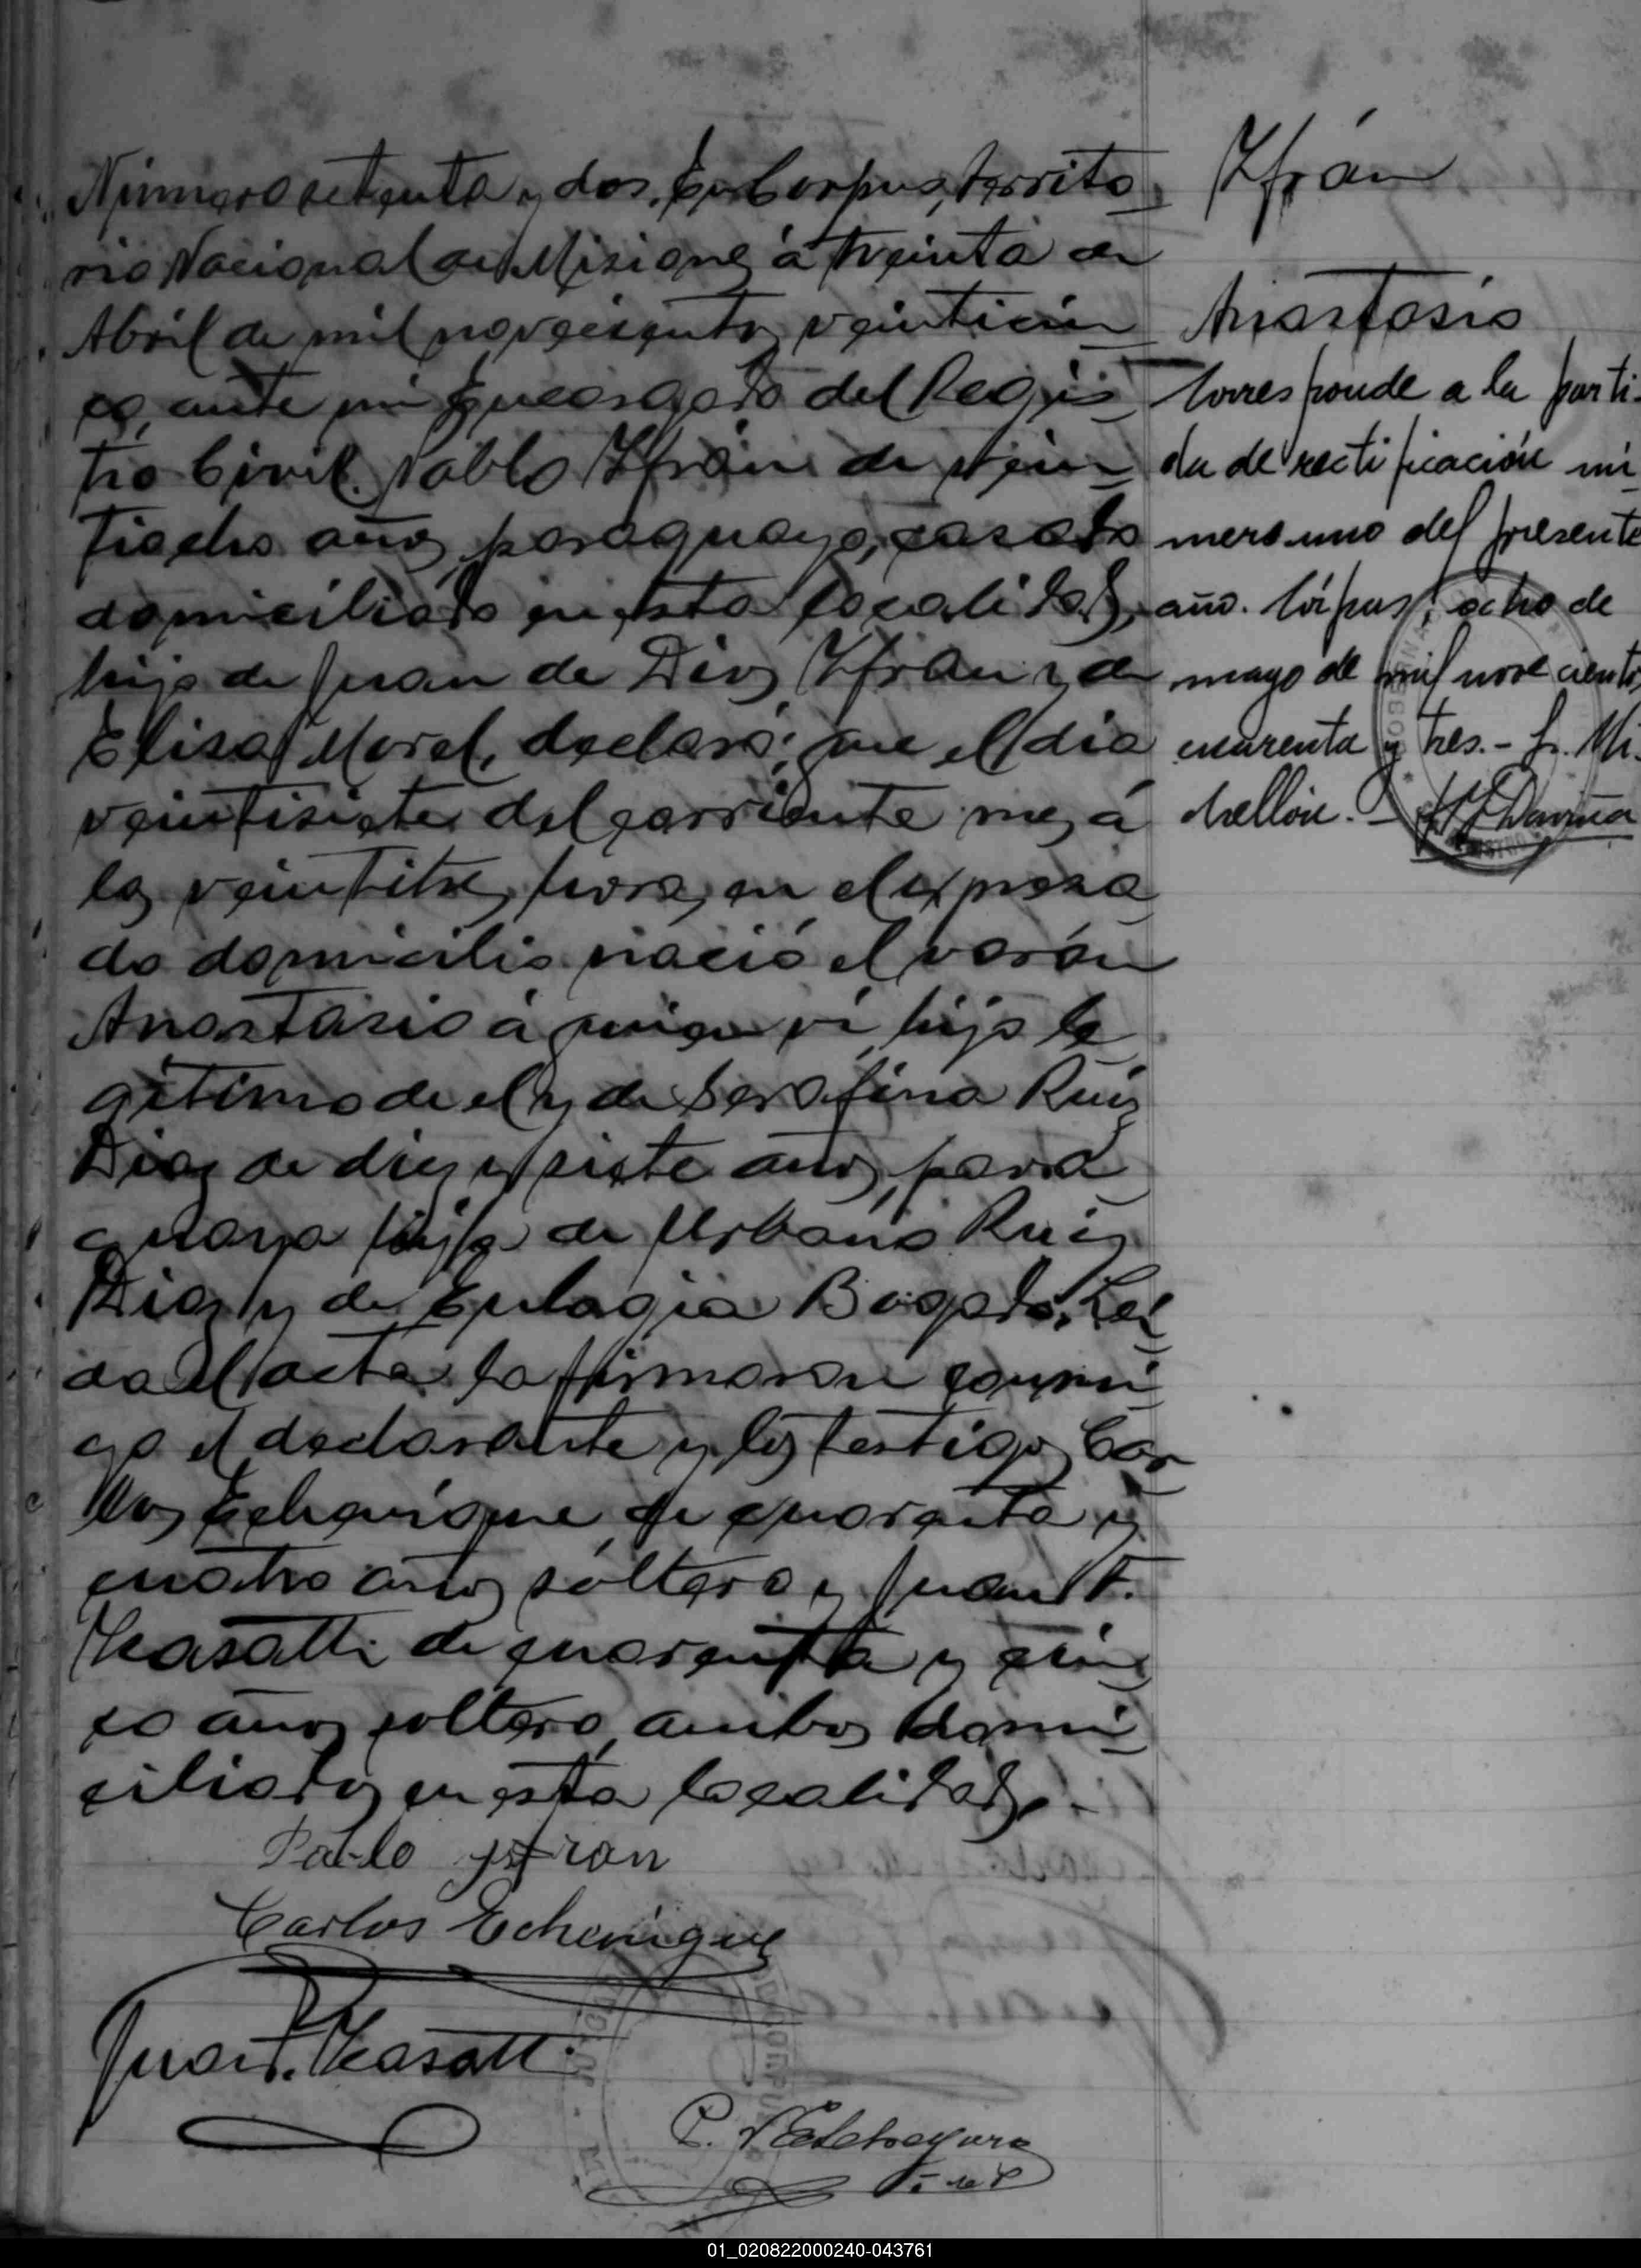 Número setenta y dos. En Corpus, Territo
rio Nacional de Misiones á treinta de
Abril de mil novecientos veinticin
co, ante mi Encargado del Regis
tro Civil. Pablo Yfrán de vein
tiocho años, paraguayo, casado
domiciliado en esta localidad,
hijo de Juan de Dios Yfran y de
Elisa Morel, declaró: que el dia
veintisiete del corriente mes á
las veintitres horas, en el expresa
do domicilio nació el varón
Anastasio á quien ví, hijo le
gitimo de el y de Serafina Ruiz
Diaz de diez y siete años, para
guaya hija de Urbano Ruiz
Diaz y de Eulogia Bogado. Lei
da el acta la firmaron conmi
go el declarante y los testigos Car
los Echenique de cuarenta y
cuatro años soltero y Juan F.
Kasatti de cuarenta y cin
co años soltero, ambos domi
ciliados en esta localidad.-
Pablo yfran
Carlos Echenique
Juan F. Kasatti
Yfrán
Anastasio
Corresponde a la parti-
da de rectificación nú
mero uno del presente
año. Córpus, ocho de
mayo de mil novecientos
cuarenta y tres.-
01_020822000240-043761